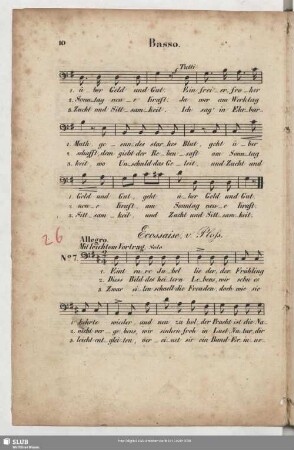 10
Basso.
Tutti
1. ü-ber Geld und Gut. Ein frei-er, fro-her
2. Sonn-tag neu-e Kraft. da nur am Werktag
3. Zucht und Sitt-sam-keit. Ich sag' in Ehrbar-
1. Muth ge-sun-des star-kes Blut, geht ü-ber
2. schafft dem giebt der Sonn-tag
3. keit am Unschuld das Ge-leit und Zucht und
1. Geld und Gut geht ü-ber Geld und Gut.
2. neu-e Kraft am Sonntag neu-e Kraft.
3. Sitt-sam-keit und Zucht und Sitt-sam-keit.
26
Ecossaise, v.
Allegro.
Mit leichtem Vortrag. Solo.
No 7.
1. Eint eu-re Ju-bel-lie-der, der Frühling
2. Dies Bild des hei-tern Le-bens, wir sehn es
3. Zwar ei-len schnell die Freuden, doch wie sie
1. kehrte wieder und neu zu hol-der Pracht ist die Na-
2. nicht ver-ge-bens, wir ziehen froh in Lust Na-tur, dir
3. leicht ent-glei-ten, ver-eint sie ein Band Er-in-ne-
SLUB